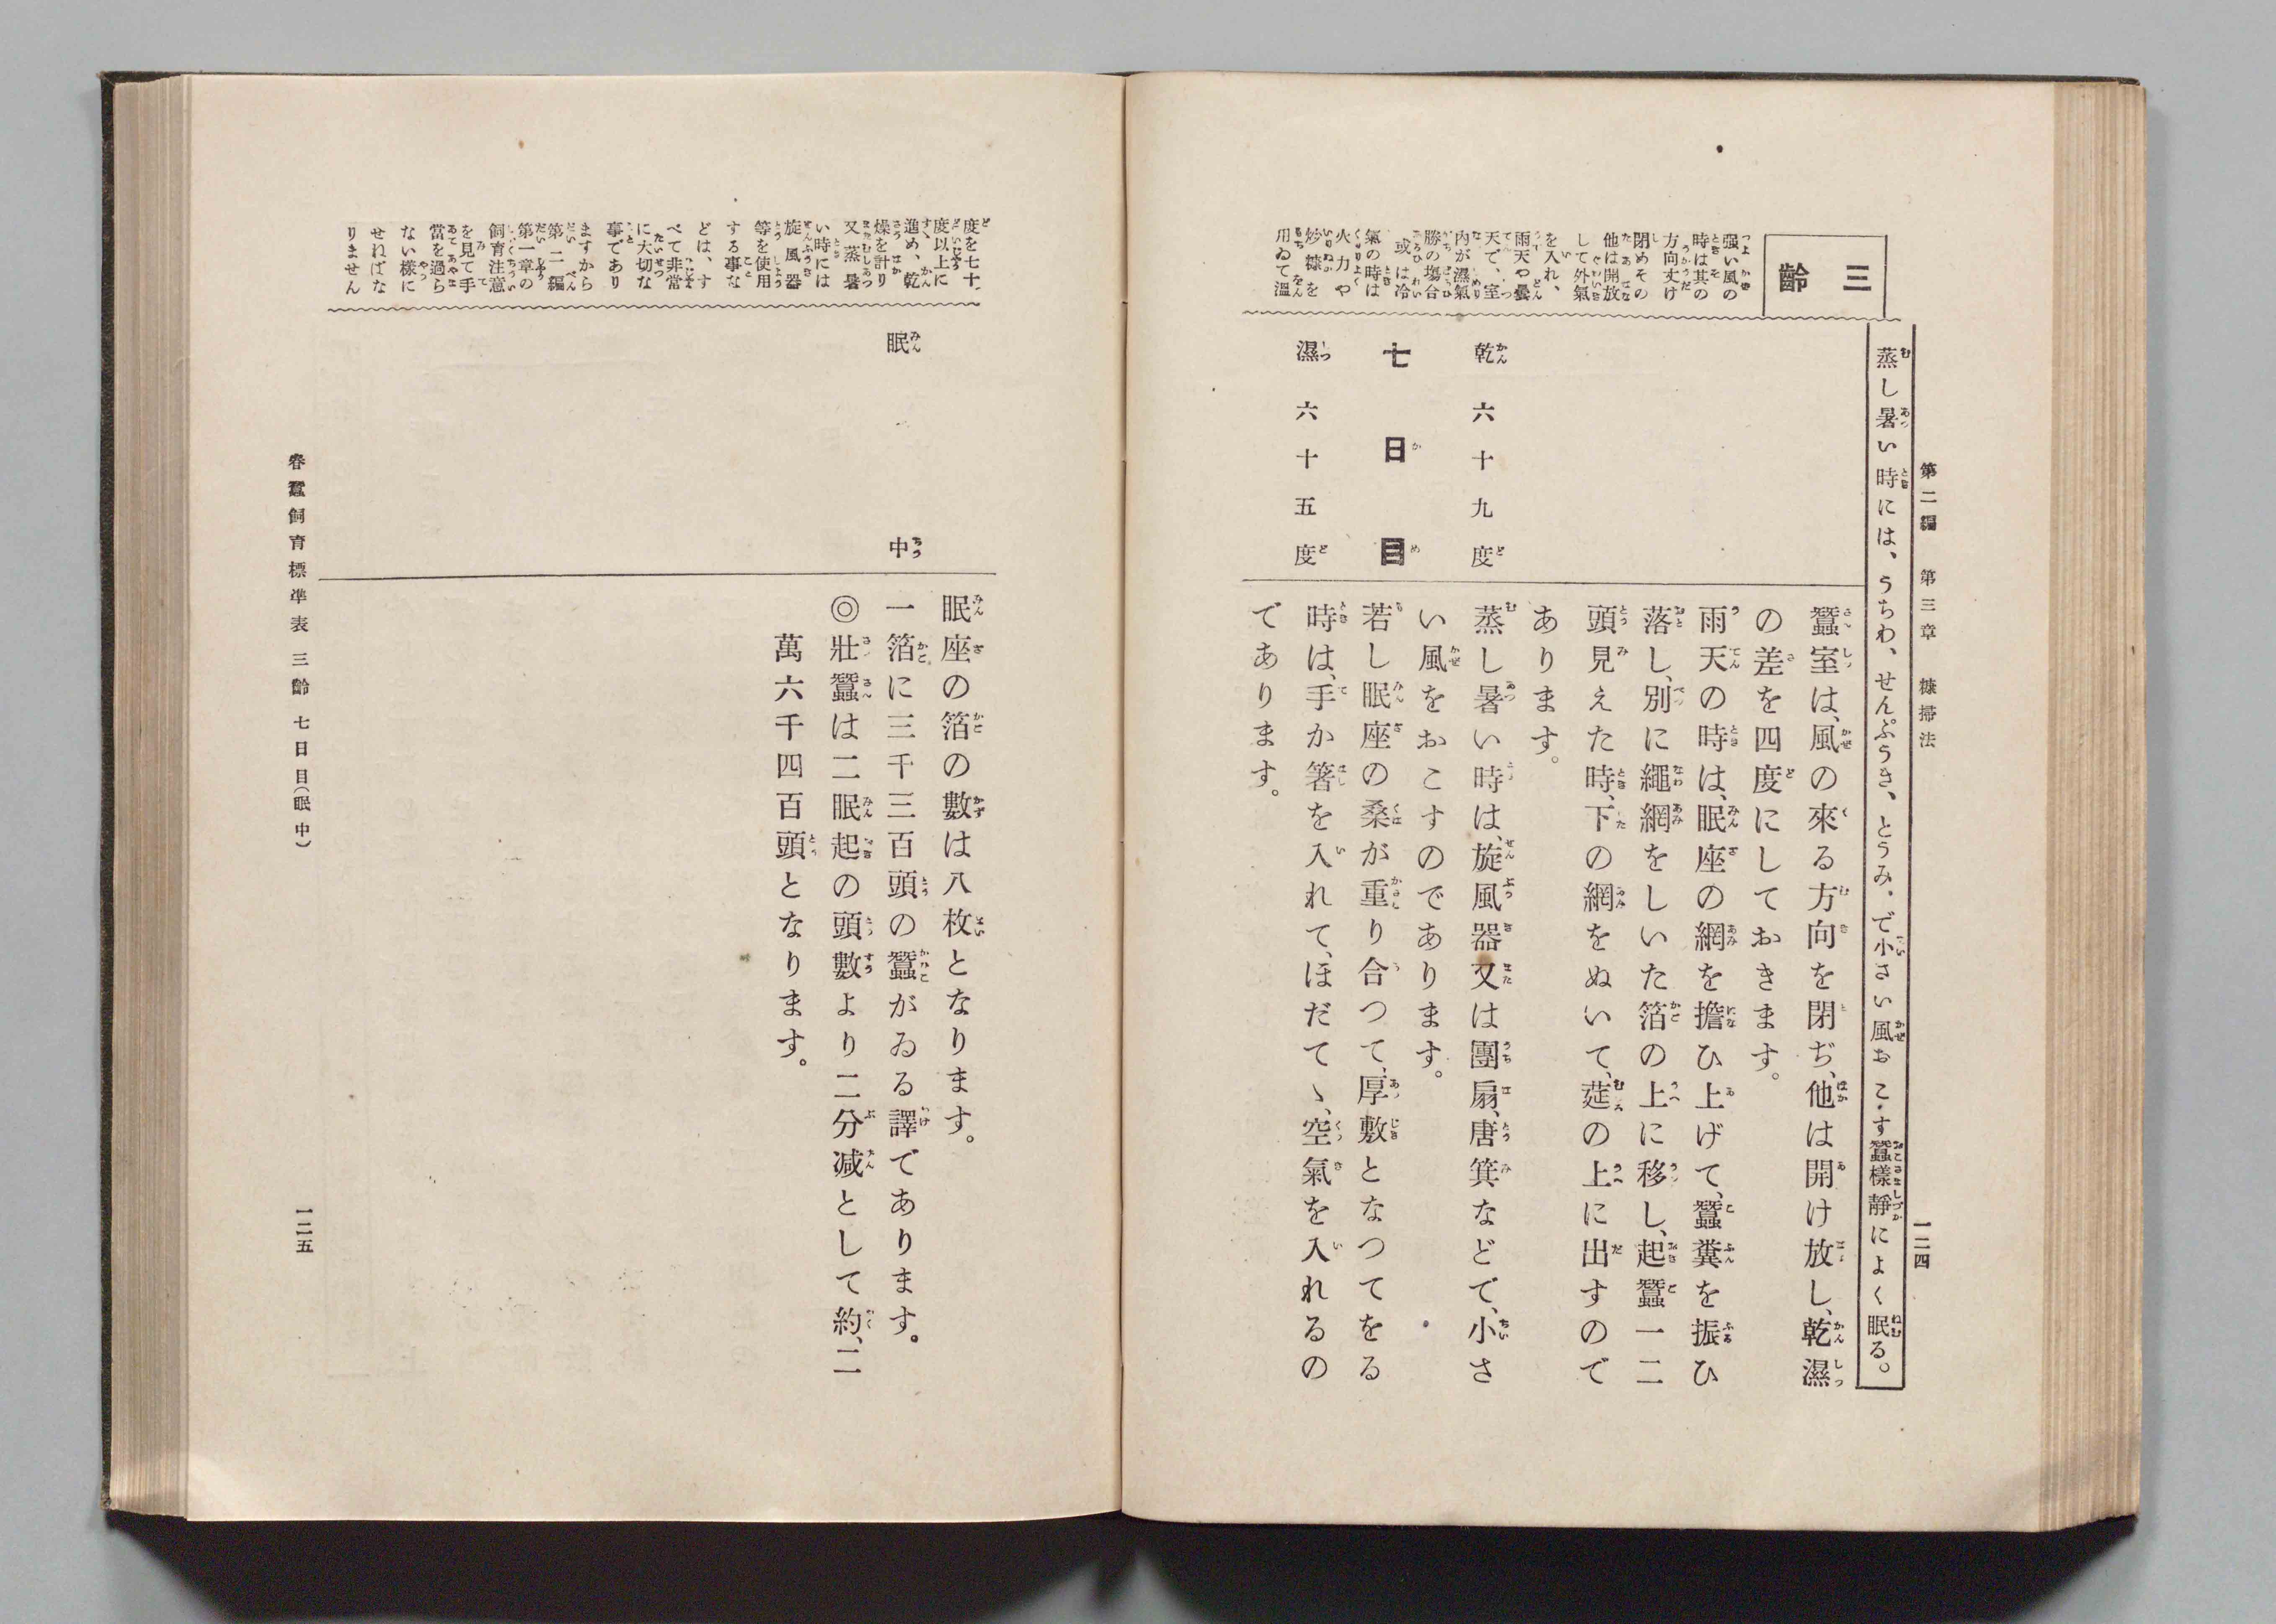 第二編　第三章　糠掃法
一二四
蒸し暑い時には、うちわ、せんぷうき、とうみ、で小さい風おこす蠶樣靜によく眠る。
三齡
强い風の
時は其の
方向丈け
閉めその
他は開放
して外氣
を入れ、
雨天や曇
天で、室
內が濕氣
勝の塲合
或は冷
氣の時は
火力や
炒糠を
用ゐて溫
乾六十九度
七日目
濕六十五度
蠶室は、風の來る方向を閉ぢ、他は開け放し、乾濕
の差を四度にしておきます。
雨天の時は、眠座の網を擔ひ上げて、蠶糞を振ひ
落し、別に繩網をしいた箔の上に移し、起蠶一二
頭見えた時、下の網をぬいて、莚の上に出すので
あります。
蒸し暑い時は、旋風器又は團扇、唐箕などで、小さ
い風をおこすのであります。
若し眠座の桑が重り合つて、厚敷となつてをる
時は、手か箸を入れて、ほだてゝ、空氣を入れるの
であります。
度を七十
度以上に
進め、乾
燥を計り
又蒸暑
い時には
旋風器
等を使用
する事な
どは、す
べて非常
に大切な
事であり
ますから
第二編
第一章の
飼育注意
を見て手
當を過ら
ない樣に
せねばな
りません
眠中
眠座の箔の數は八枚となります。
一箔に三千三百頭の蠶がゐる譯であります。
◎壯蠶は二眠起の頭數より二分減として約、二
萬六千四百頭となります。
春蠶飼育標準表　三齡　七日目（眠中）
一二五